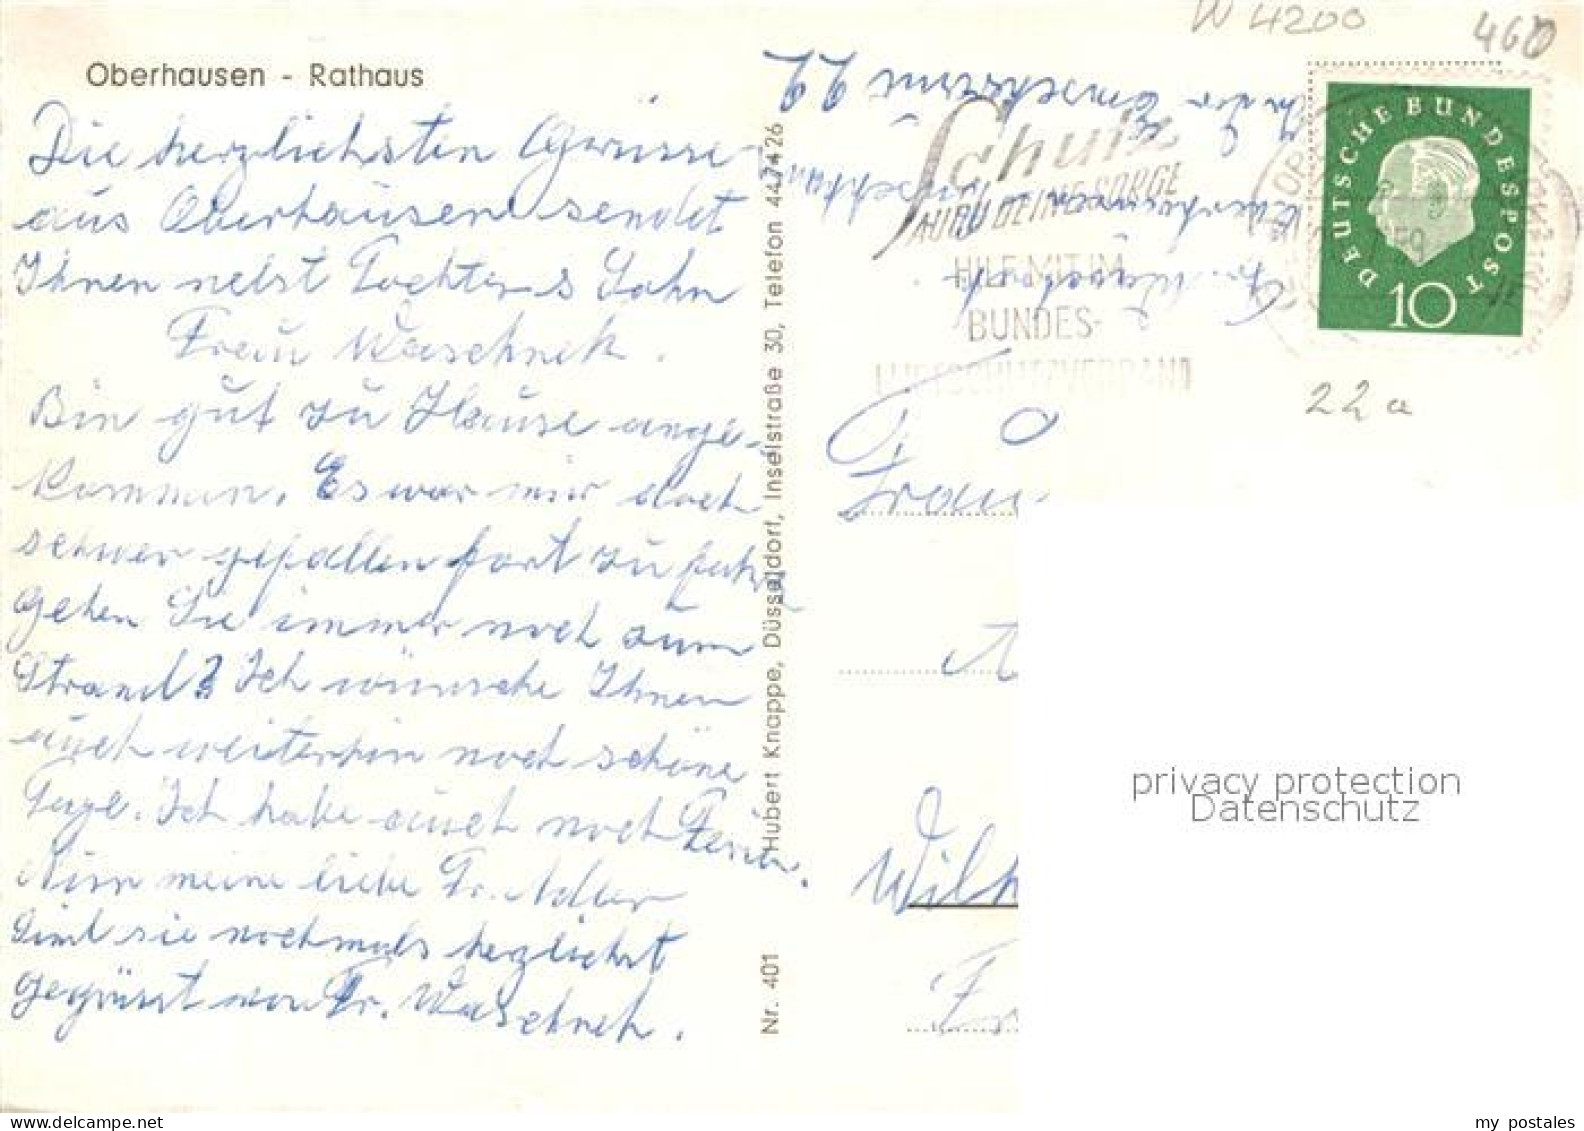 W 4200
460
Oberhausen - Rathaus
Die herzlichsten Grüsse
aus Oberhausen sendet
Ihnen nebst Tochter u Sohn
Frau Waschnek.
Bin gut zu Hause ange-
kommen. Es war mir doch
schwer gefallen fort zu fahren
Gehen Sie immer noch zum
Strand? Ich wünsche Ihnen
auch weiterhin noch schöne
Tage. Ich habe auch noch Ferien.
Nun meine liebe Fr. Adler
Sind sie nochmals herzlichst
gegrüsst von Fr. Waschnek.
Hubert Knappe, Düsseldorf, Inselstraße 30, Telefon 447426
Nr. 401
Schutz
AUCH DEINE SORGE
HILF MIT IM
BUNDES-
LUFTSCHUTZVERBAND
DEUTSCHE BUNDESPOST
10
22a
Frau
Wilh
privacy protection
Datenschutz
my postales